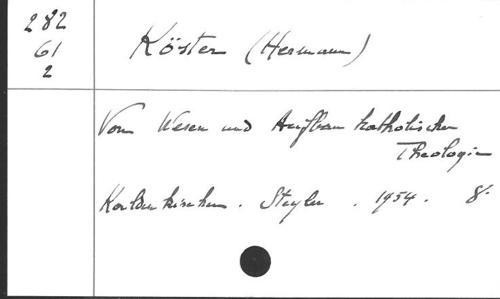 282
61
2
Köster (Hermann)
Vom Wesen und Aufbau katholischer
Theologie
Kaldenkirchen. Steyler. 1954. 8°